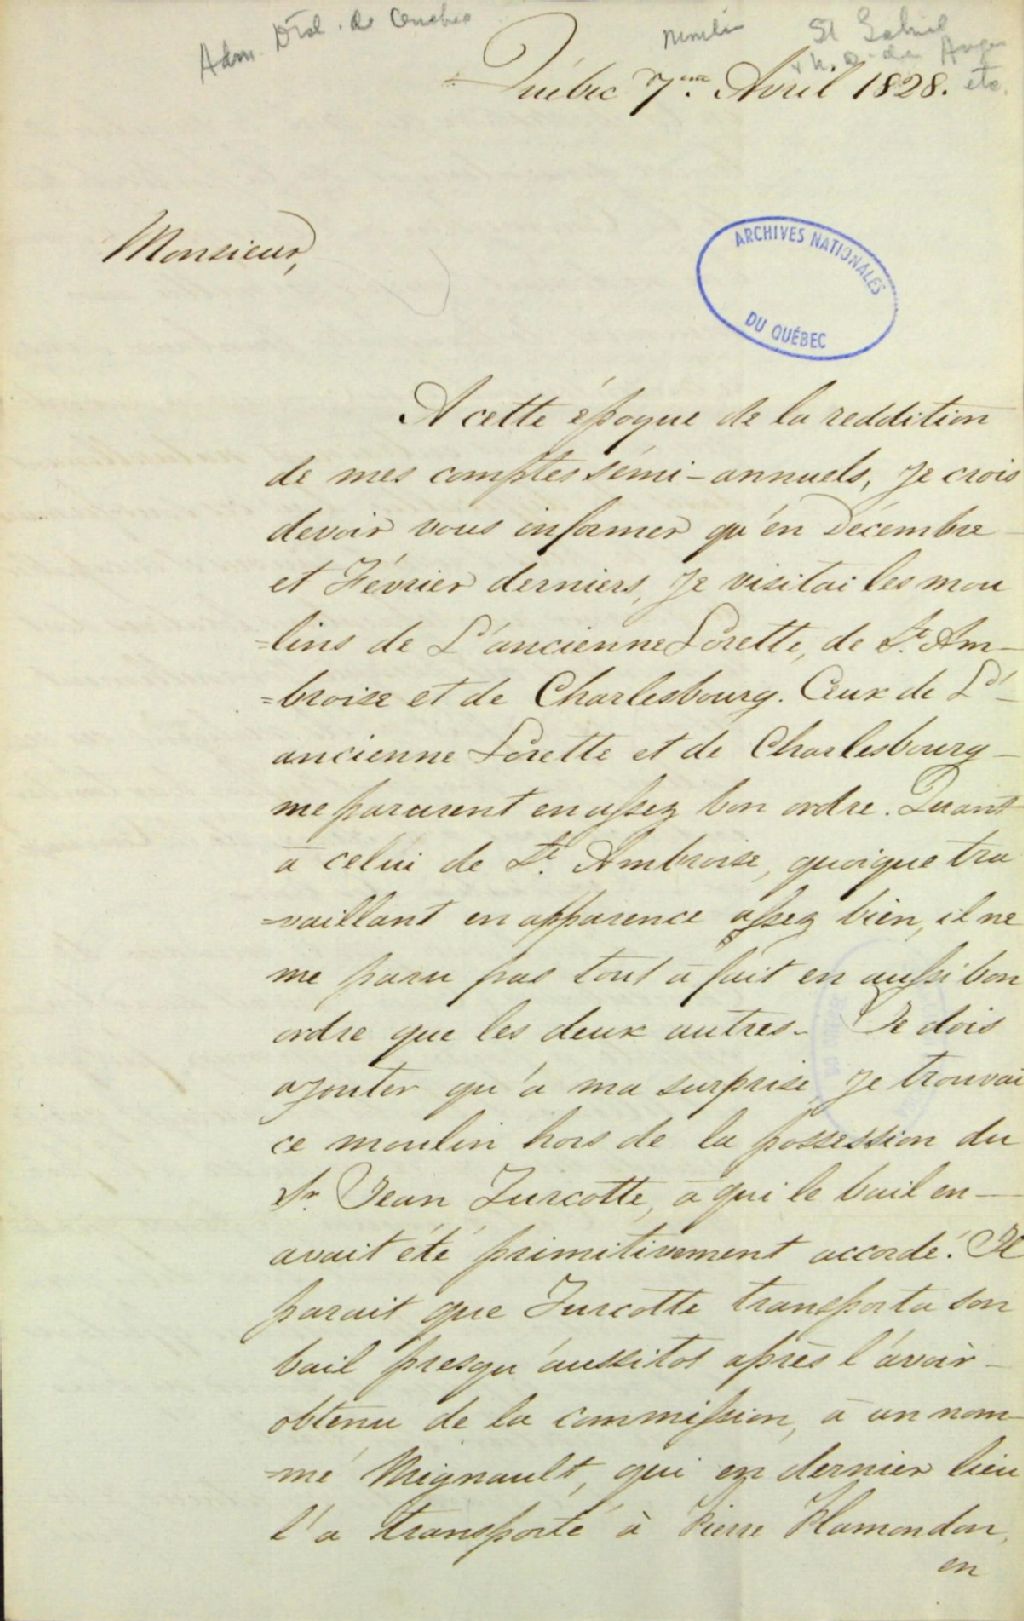 Adm. Dist. de Québec
Moulin
St Gabriel
& N. D. des Anges
etc.
Québec 7.me Avril 1828.
Monsieur,
ARCHIVES NATIONALES
DU QUÉBEC
A cette époque de la reddition
de mes comptes sémi-annuels, je crois
devoir vous informer qu'én Décembre
et Février derniers, je visitai les mou
=lins de L'ancienne Lorette, de St. Am-
=broise et de Charlesbourg. Ceux de L'-
ancienne Lorette et de Charlesbourg
me parurent en assez bon ordre. Quant
à celui de St. Ambroise, quoique tra
=vaillant en apparence assez bien, il ne
me paru pas tout à fait en aussi bon
ordre que les deux autres. Je dois
ajouter qu'à ma surprise je trouvai
ce moulin hors de la possession du
Sr. Jean Turcotte, à qui le bail en
avait été primitivement accordé. Il
parait que Turcotte transporta son
bail presqu'aussitot après l'avoir
obtenu de la commission, à un nom-
=mé Mignault, qui en dernier lieu
l'a transporté à Pierre Plamondon,
en